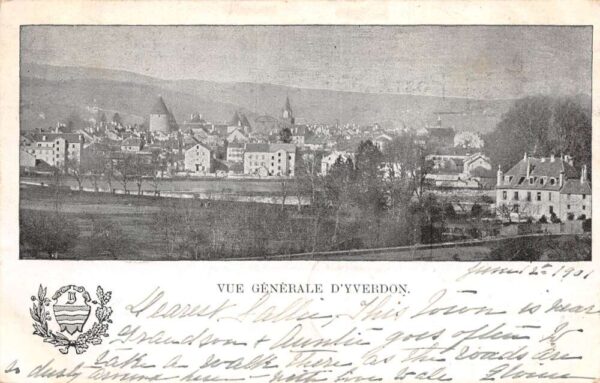 VUE GÉNÉRALE D'YVERDON.
June 2nd 1901
Dearest Hallie, This town is near
Grandson & Auntie goes often to
take a walk there as the roads are
so dusty around here - with love